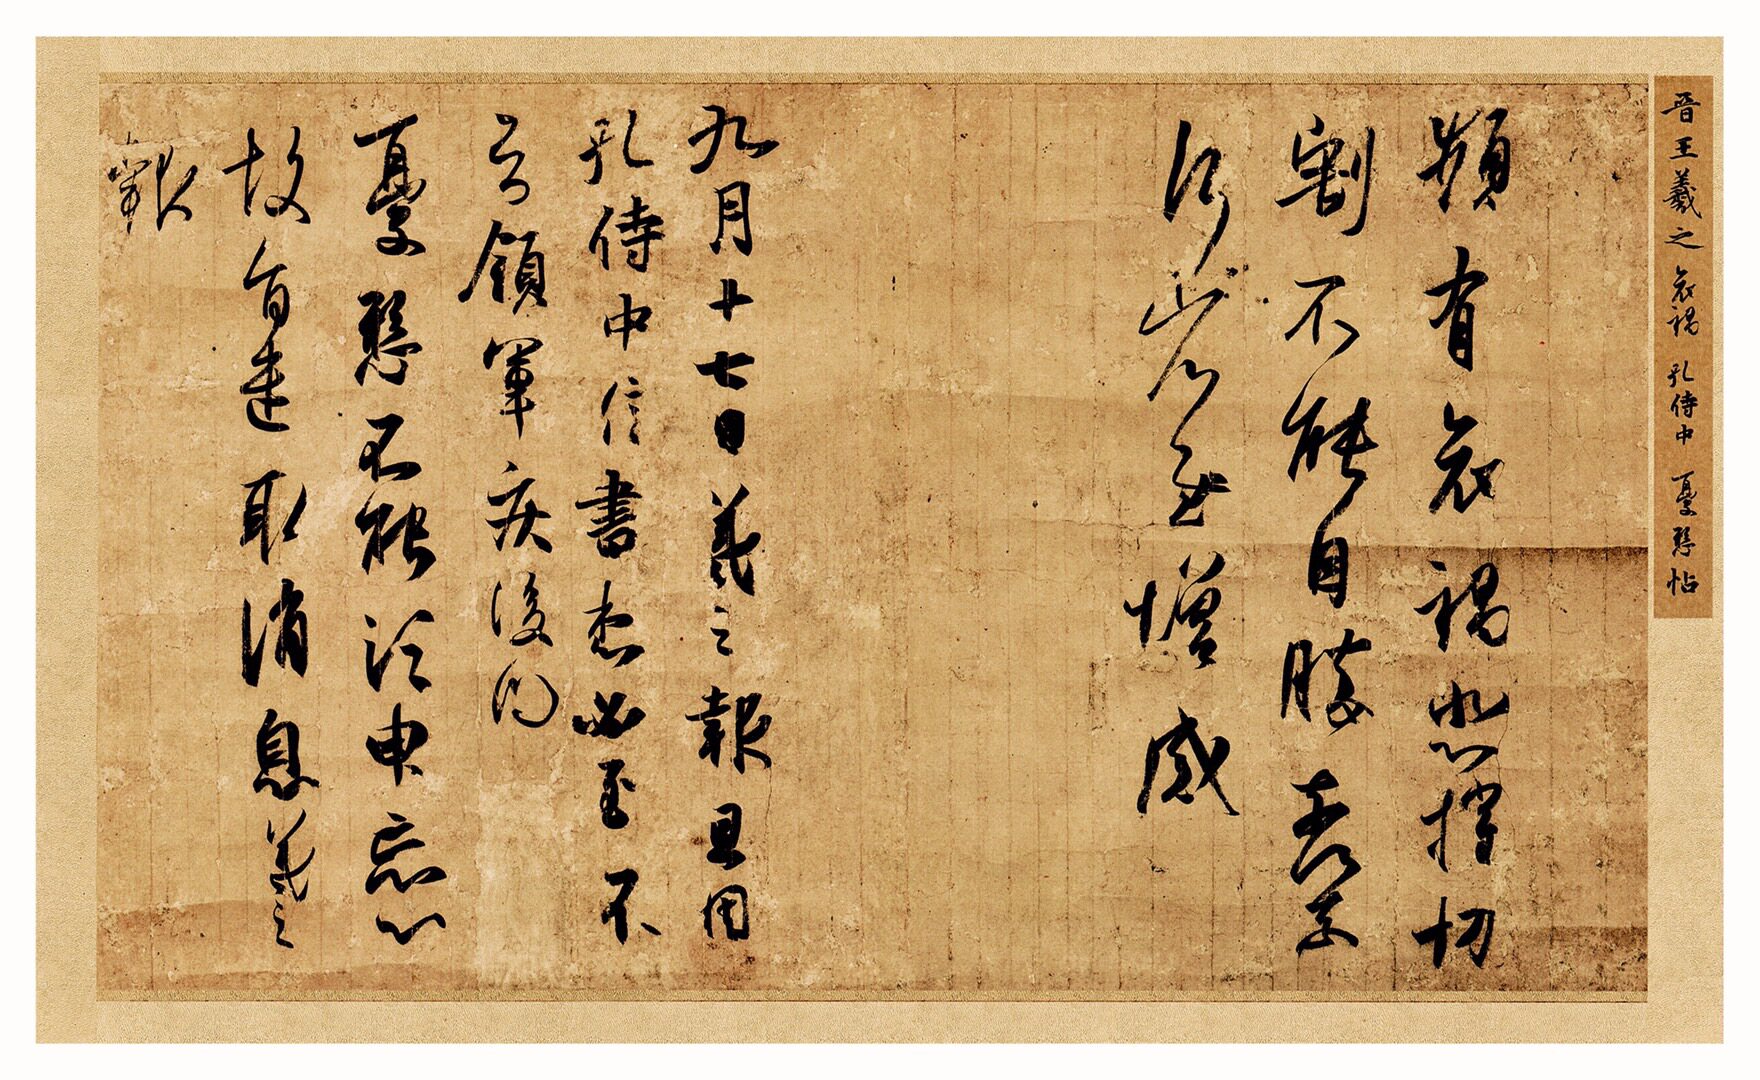 晉王羲之 哀禍 孔侍中 憂懸帖
頻有哀禍悲摧切
割不能自勝奈何奈
何省慰增感
九月十七日羲之報且因
孔侍中信書想必至不
知領軍疾後問
憂懸不能須臾忘心
故旨遣取消息羲之
報